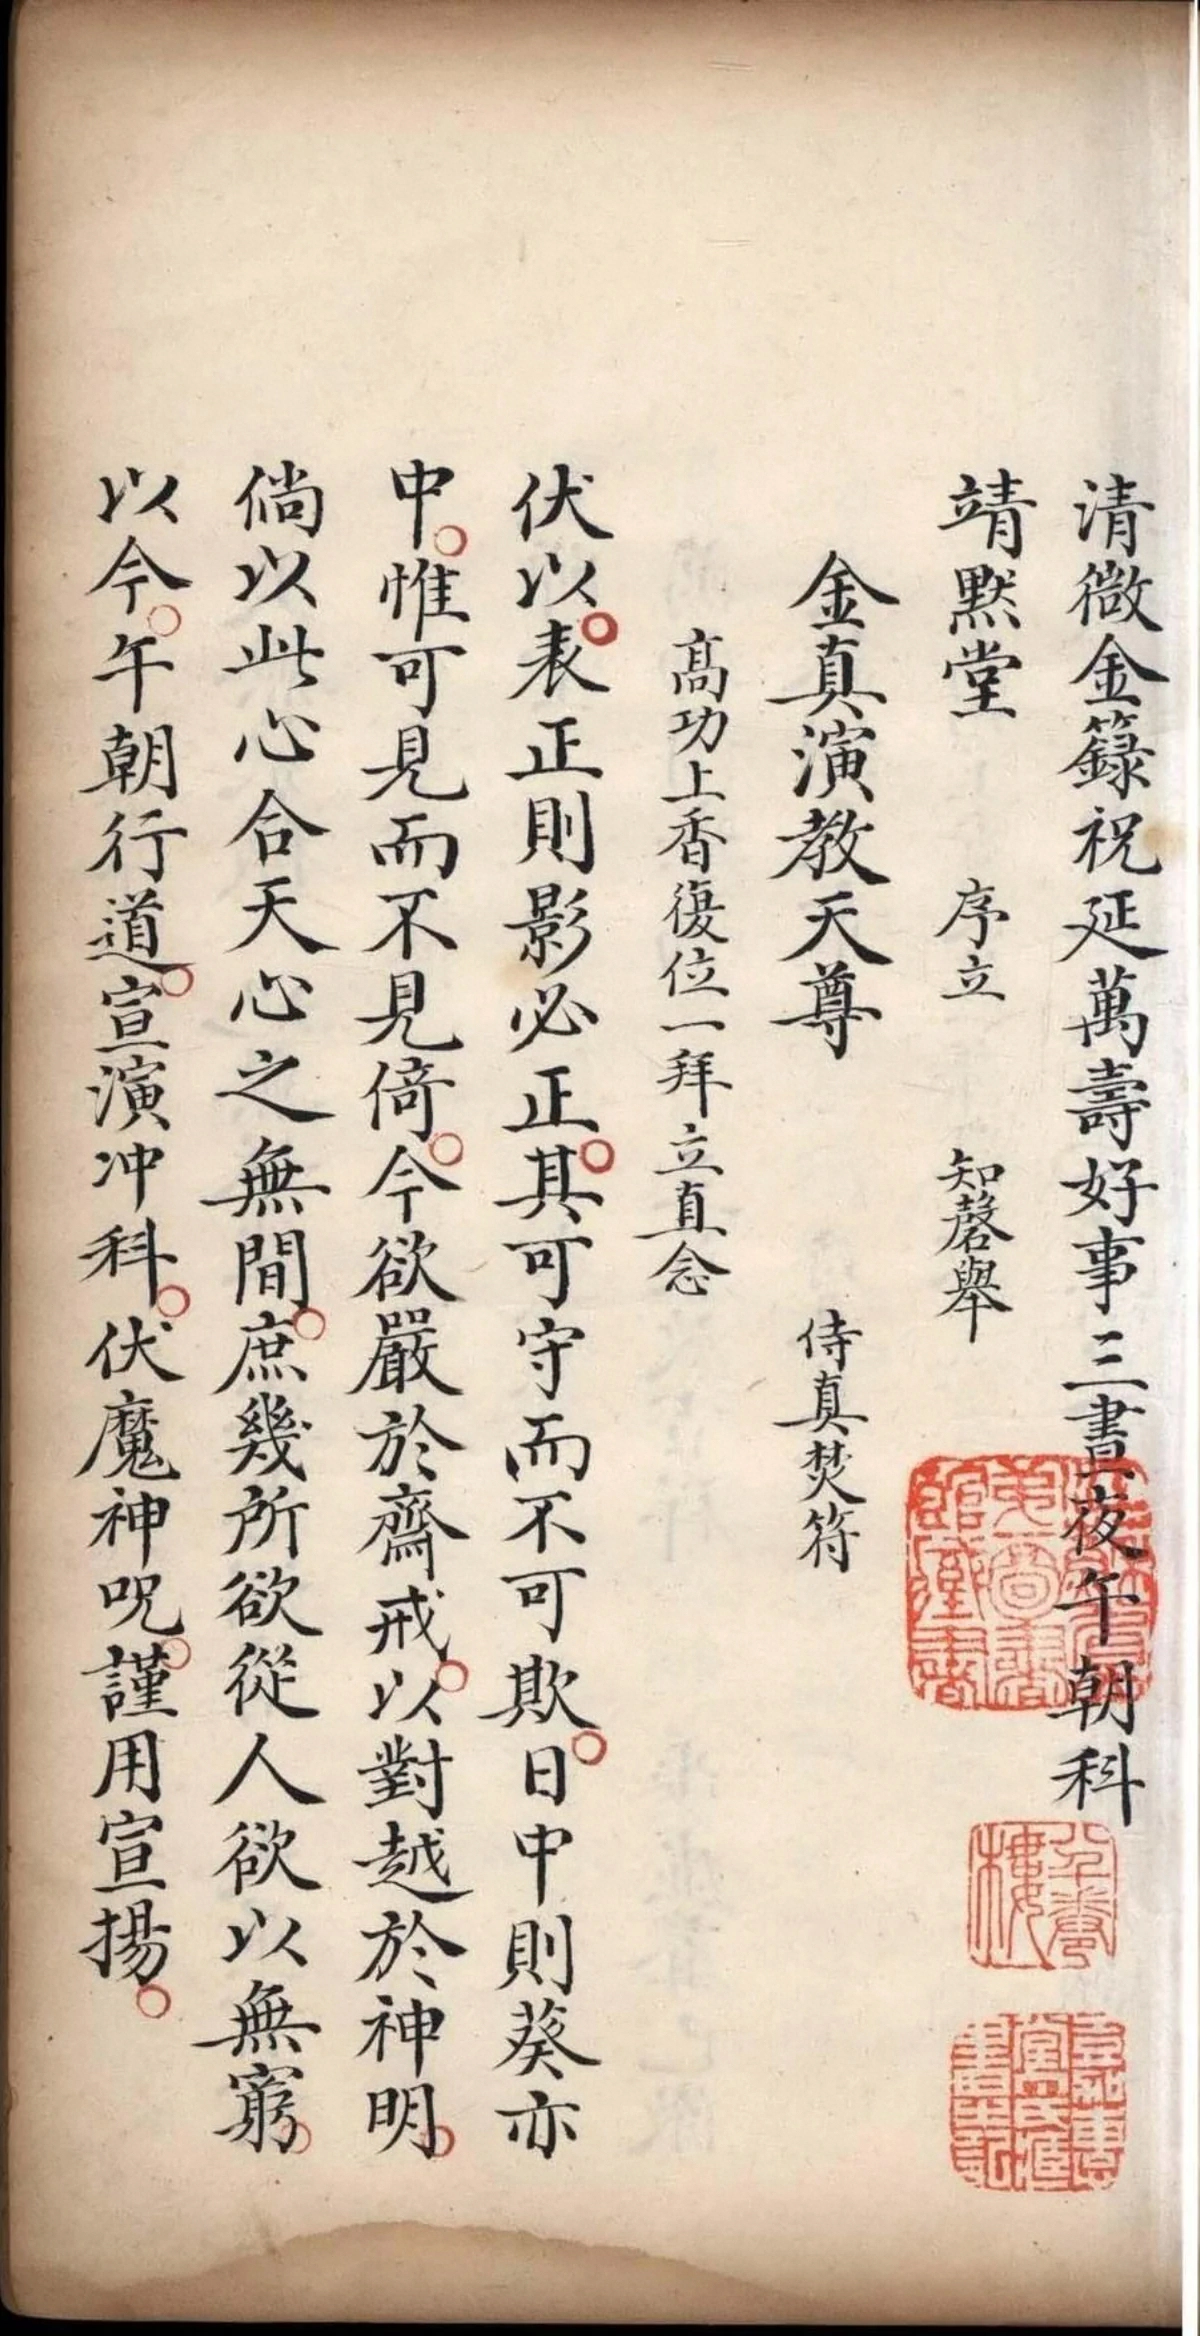 清微金籙祝延萬壽好事三晝夜午朝科
靖默堂 序立 知磬舉
金真演教天尊 侍真焚符
高功上香復位一拜立直念
伏以表正則影必正其可守而不可欺日中則葵亦
中惟可見而不見倚今欲嚴於齋戒以對越於神明
倘以此心合天心之無間庶幾所欲從人欲以無窮
以今午朝行道宣演冲科伏魔神呪謹用宣揚